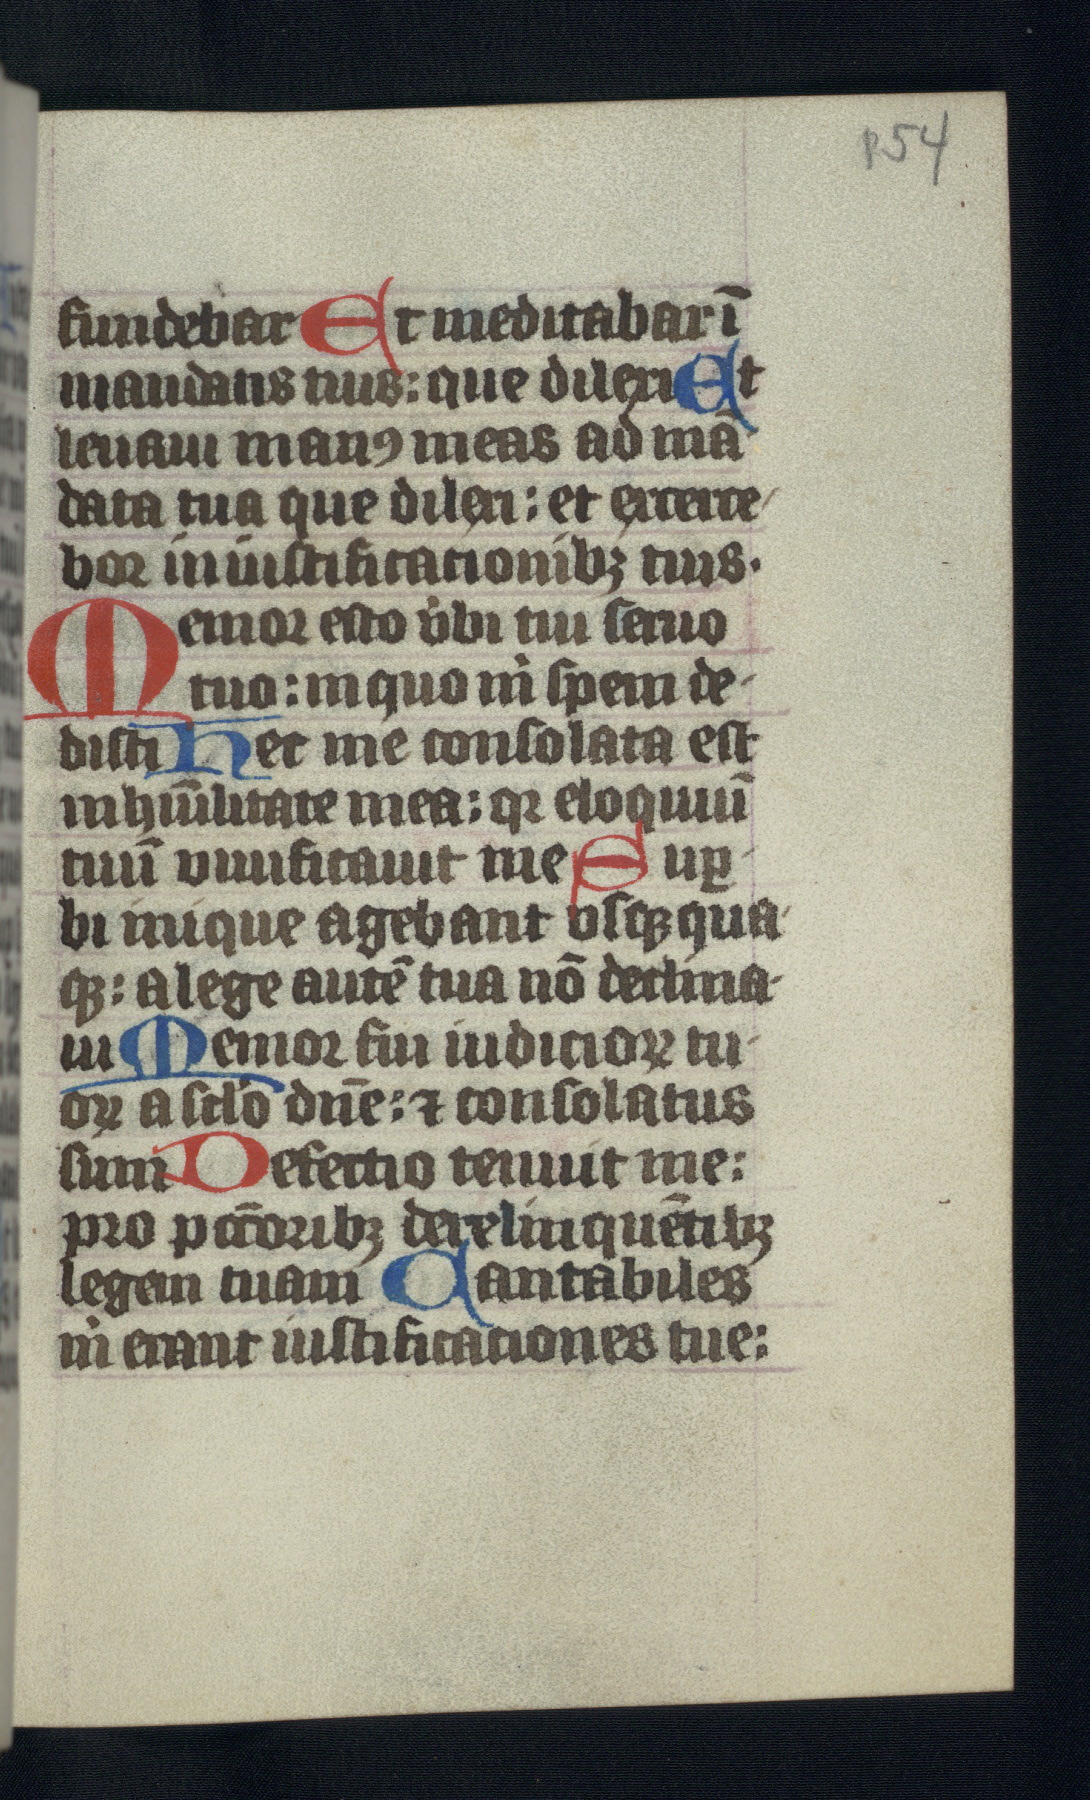 R54
fundebar Et meditabar ī
mandatis tuis: que dilexi Et
leuaui manꝯ meas ad mā-
data tua que dilexi: et exerce-
bor in iustificationibꝫ tuis.
Memor esto v̓bi tui seruo
tuo: in quo m̓ spem de-
disti Hec me consolata est
in hūilitate mea: qꝛ eloquiuī
tuū viuificauit me Suꝑ-
bi inique agebant vsqꝫ qua-
qꝫ: a lege autē tua nō declina-
ui Memor fui iudicioꝝ tu-
oꝝ a sc̄lo dn̄e: ⁊ consolatus
sum Defectio tenuit me:
pro pccōribꝫ derelinquētibꝫ
legem tuam Cantabiles
m̓ erant iustificationes tue: